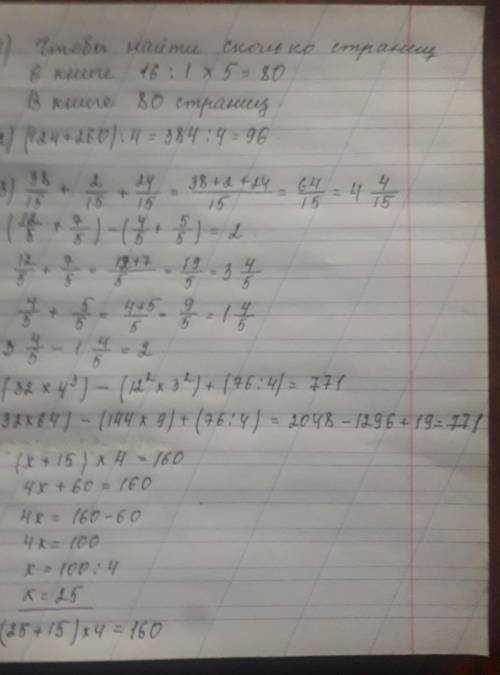 1) Чтобы найти сколько страниц
в книге 16 : 1 × 5 = 80
В книге 80 страниц
2) (424+260) : 4 = 384 : 4 = 96
3) 38/15 + 2/15 + 24/15 = 38+2+24/15 = 64/15 = 4 4/15
(12/5 + 7/5) – (4/5 + 5/5) = 2
12/5 + 7/5 = 12+7/5 = 19/5 = 3 4/5
4/5 + 5/5 = 4+5/5 = 9/5 = 1 4/5
3 4/5 – 1 4/5 = 2
(32 × 4³) – (12² × 3²) + (76 : 4) = 771
32×64) – (144 × 9) + (76 : 4) = 2048 – 1296 + 19 = 771
(x + 15) × 4 = 160
4x + 60 = 160
4x = 160 – 60
4x = 100
x = 100 : 4
x = 25
(25 + 15) × 4 = 160